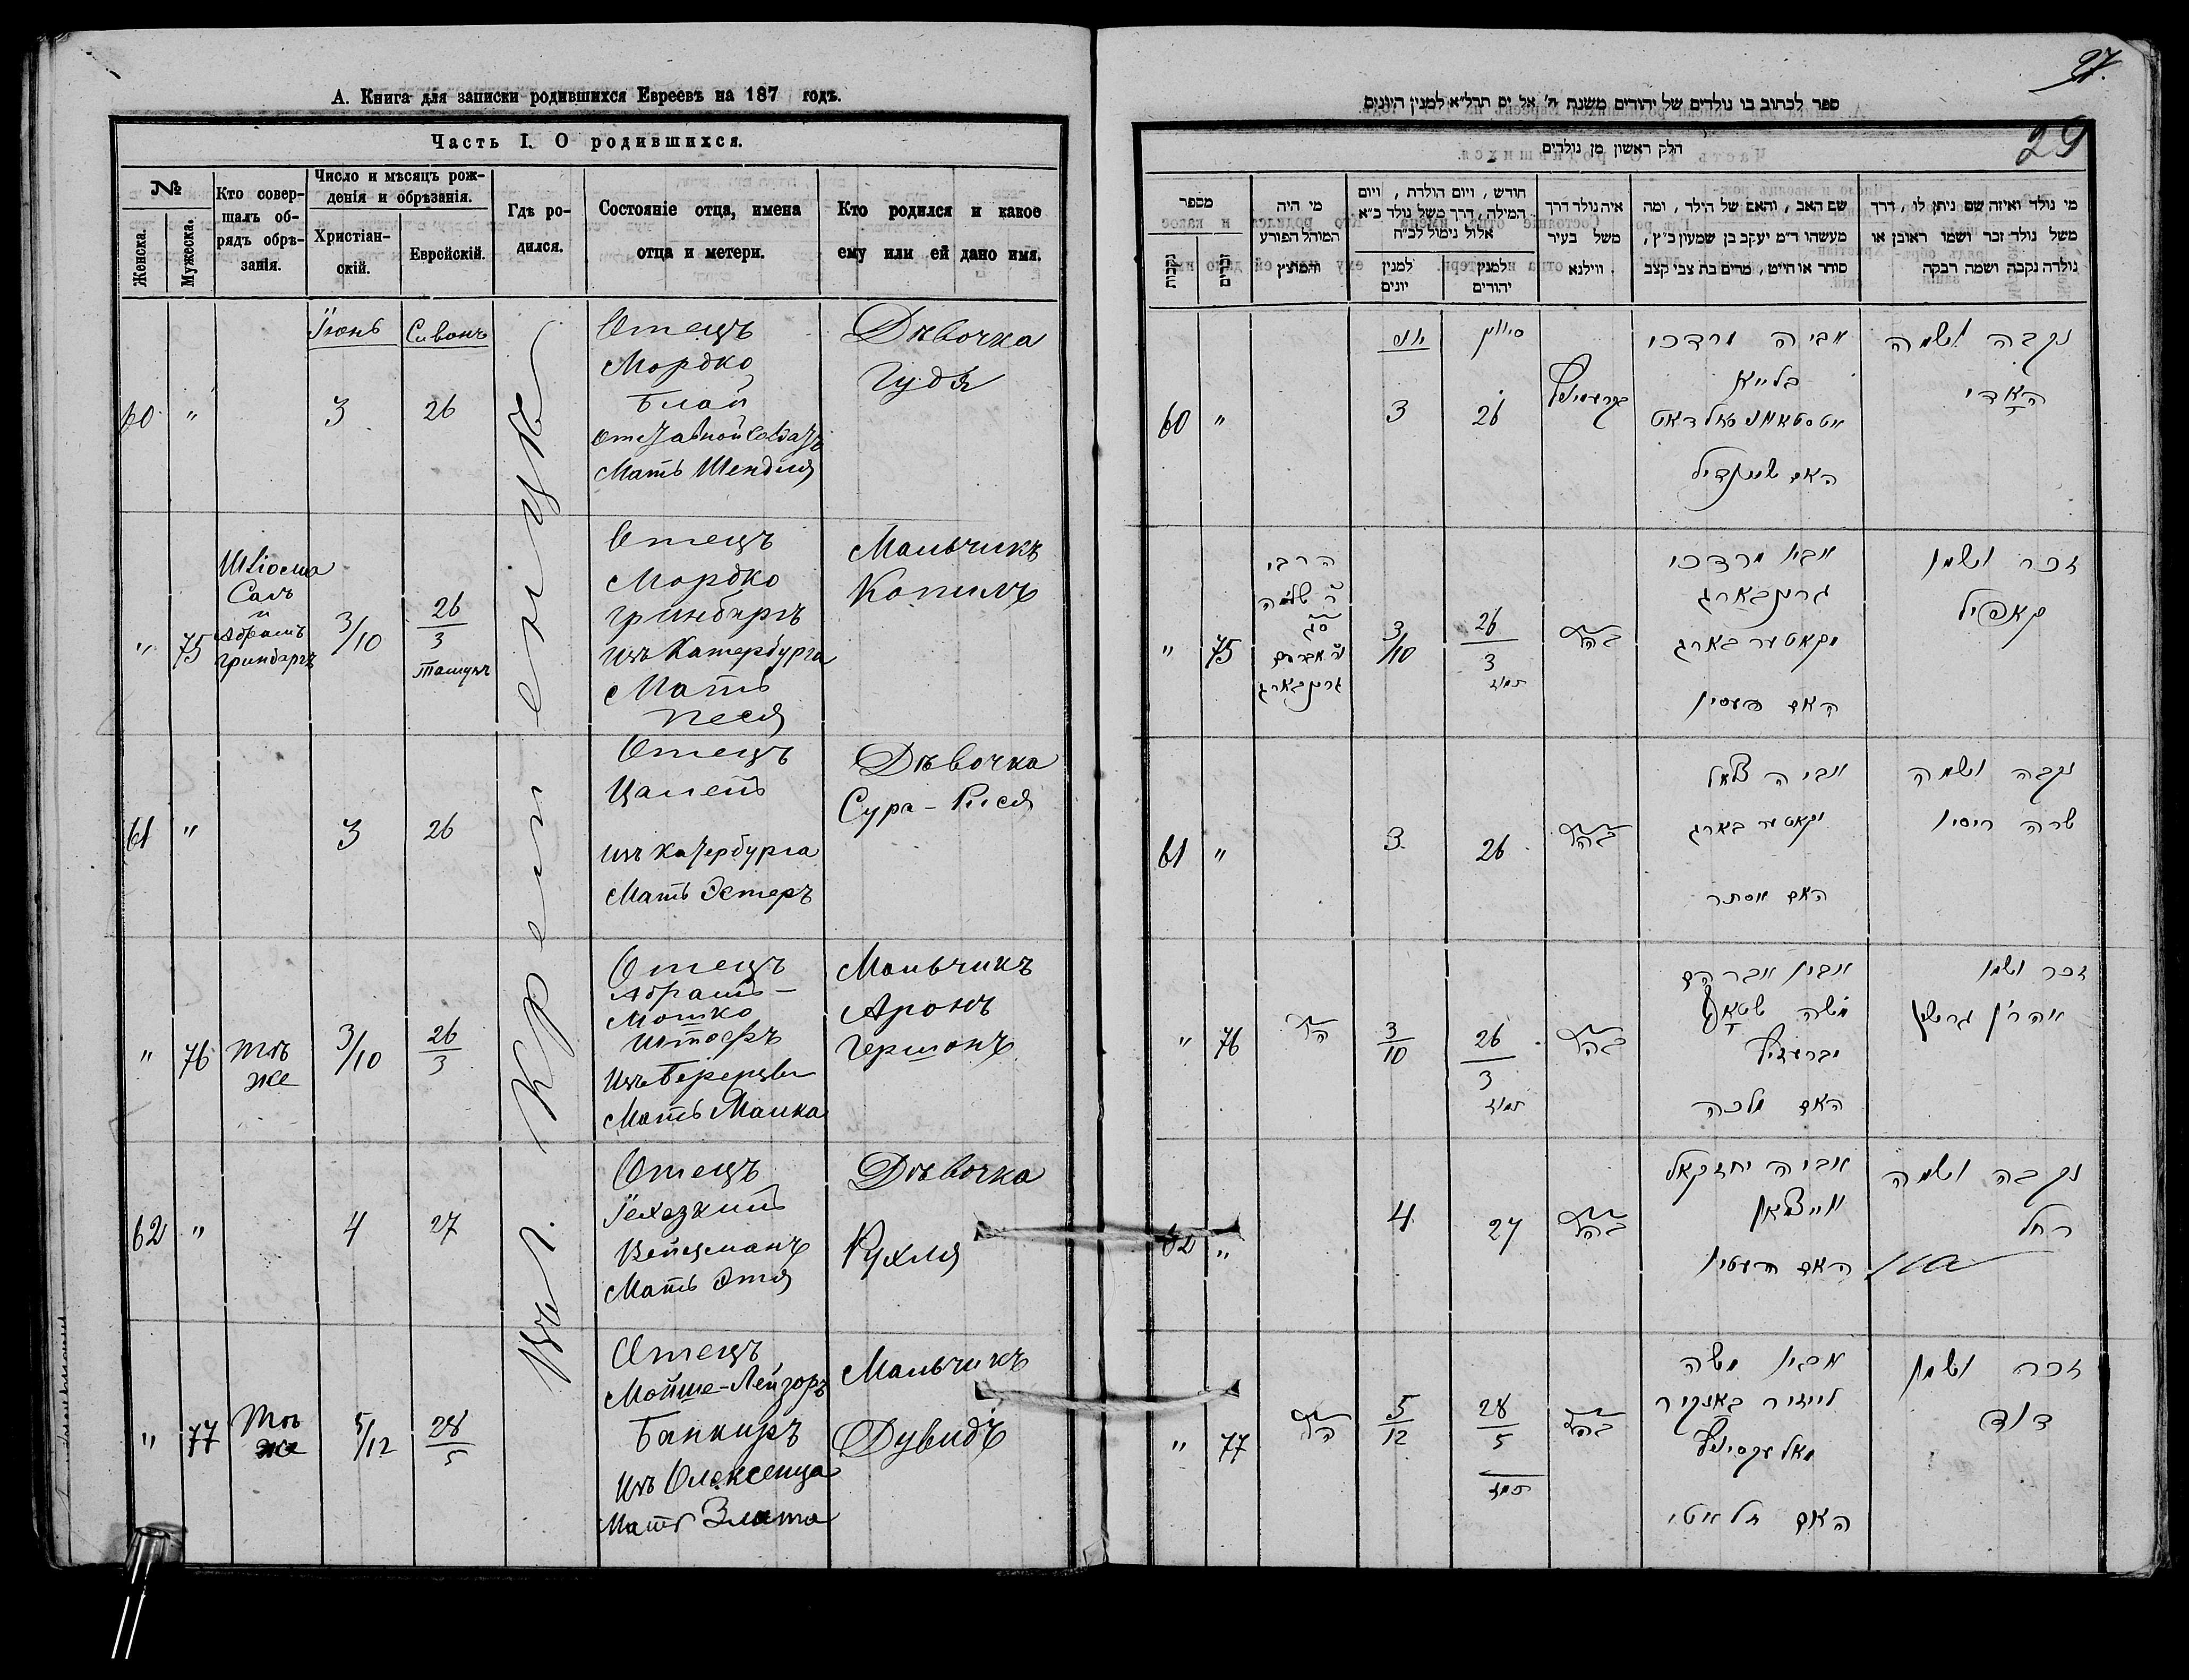 А. Книга для записки родившихся Евреевъ на 187 годъ.
Часть I. О родившихся.
№
Женска.
Мужеска.
Кто совер-
шалъ об-
рядъ обрѣ-
занія.
Число и мѣсяцъ рож-
денія и обрѣзанія.
Христіан-
скій.
Еврейскій.
Гдѣ ро-
дился.
Состояніе отца, имена
отца и метери.
Кто родился и какое
ему или ей дано имя.
Въ г. Кременецѣ
60
"
Іюнь
3
Сивонъ
26
Отецъ
Мордко
Блай
Отставной Солдатъ
Мать Шендля
Дѣвочка
Гудя
"
75
Шліома
Салъ
и
Абрамъ
Гринбергъ
3/10
26
3
Тамузъ
Отецъ
Мордко
Гринбергъ
изъ Катербурга
Мать
Песя
Мальчикъ
Копилъ
61
"
3
26
Отецъ
Цалель
изъ Катербурга
Мать Эстеръ
Дѣвочка
Сура-Рися
"
76
Тѣ
же
3/10
26
3
Отецъ
Абрамъ-
Мошко
Штофъ
Изъ Берешца
Мать Малка
Мальчикъ
Аронъ
Гершонъ
62
"
4
27
Отецъ
Іехезкиль
Вейцманъ
Мать Этя
Дѣвочка
Рухля
"
77
Тѣ
же
5/12
28
5
Отецъ
Мойше-Лейзоръ
Банкиръ
Изъ Олексенца
Мать Злата
Мальчикъ
Дувидъ
27.
29
ספר לכתוב בו נולדים של יהודים משנת ה' אל ים תרל״א למנין היונים
חלק ראשון מן נולדים
מספר
נקבות
זכרים
מי היה
המוהל הפורע
והמוצץ
חודש, ויום הולדת, ויום
המילה, דרך משל נולד כ״א
אלול נימול לכ״ח
למנין
יונים
למנין
יהודים
איה נולד דרך
משל בעיר
ווילנא
שם האב, והאם של הילד, ומה
מעשהו ד״מ יעקב בן שמעון כ״ץ,
סוחר או חייט, מרים בת צבי קצב
מי נולד ואיזה שם ניתן לו, דרך
משל נולד זכר ושמו ראובן או
נולדה נקבה ושמה רבקה
60
"
יוני
3
סיון
26
אביה מרדכי
בלייא
האם שיינדיל
נקבה ושמה
האדי
"
75
הרבי
ר' שלמה
גרינבארג
3/10
26
3
תמוז
אביו מרדכי
גרינבארג
האם פעסיא
זכר ושמו
קאפיל
61
"
3
26
אביה צלאל
האם אסתר
נקבה ושמה
שרה ריסיא
"
76
הנ״ל
3
10
26
3
תמוז
אביו אברהם
משה שטאף
האם מלכה
זכר ושמו
אהרן גרשון
62
"
4
27
אביה יחזקאל
וויצמאן
האם עטיא
נקבה ושמה
רחל
"
77
הנ״ל
5
12
28
5
תמוז
אביו משה
לייזיר באנקיר
האם זלאטי
זכר ושמו
דוד